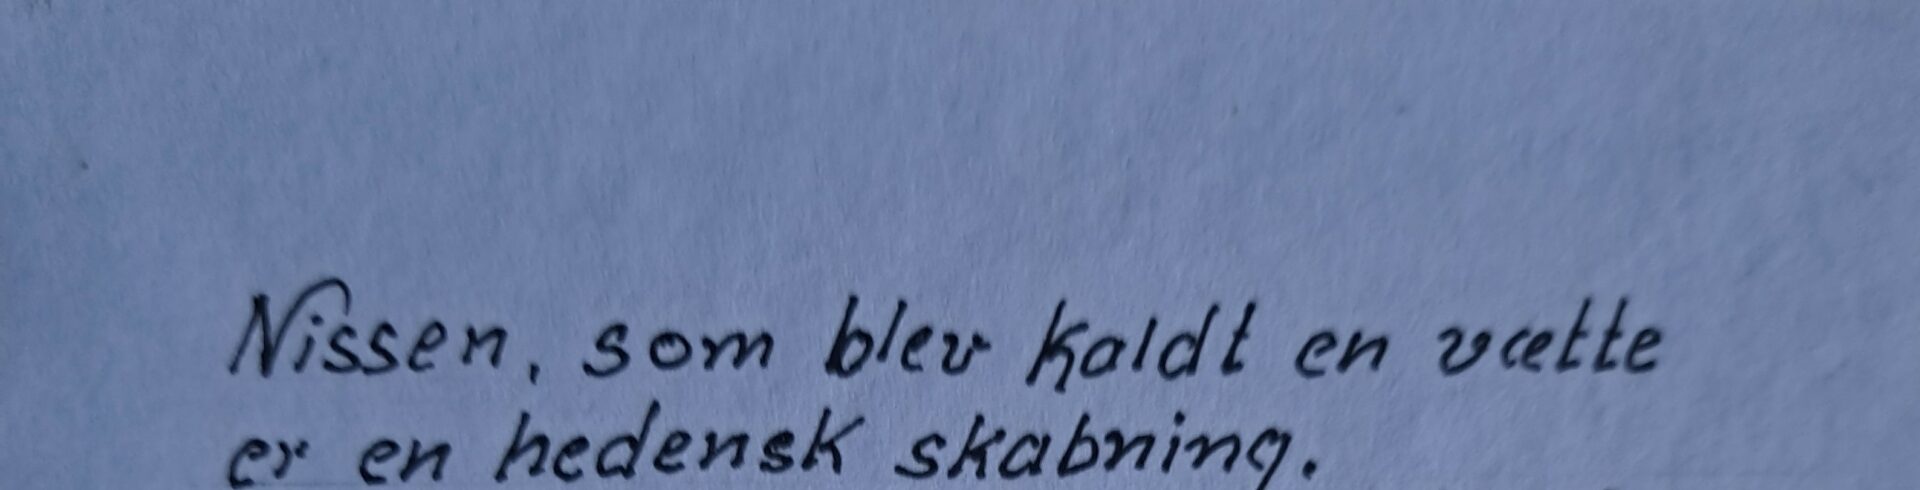 Nissen, som blev kaldt en vætte
er en hedensk skabning.